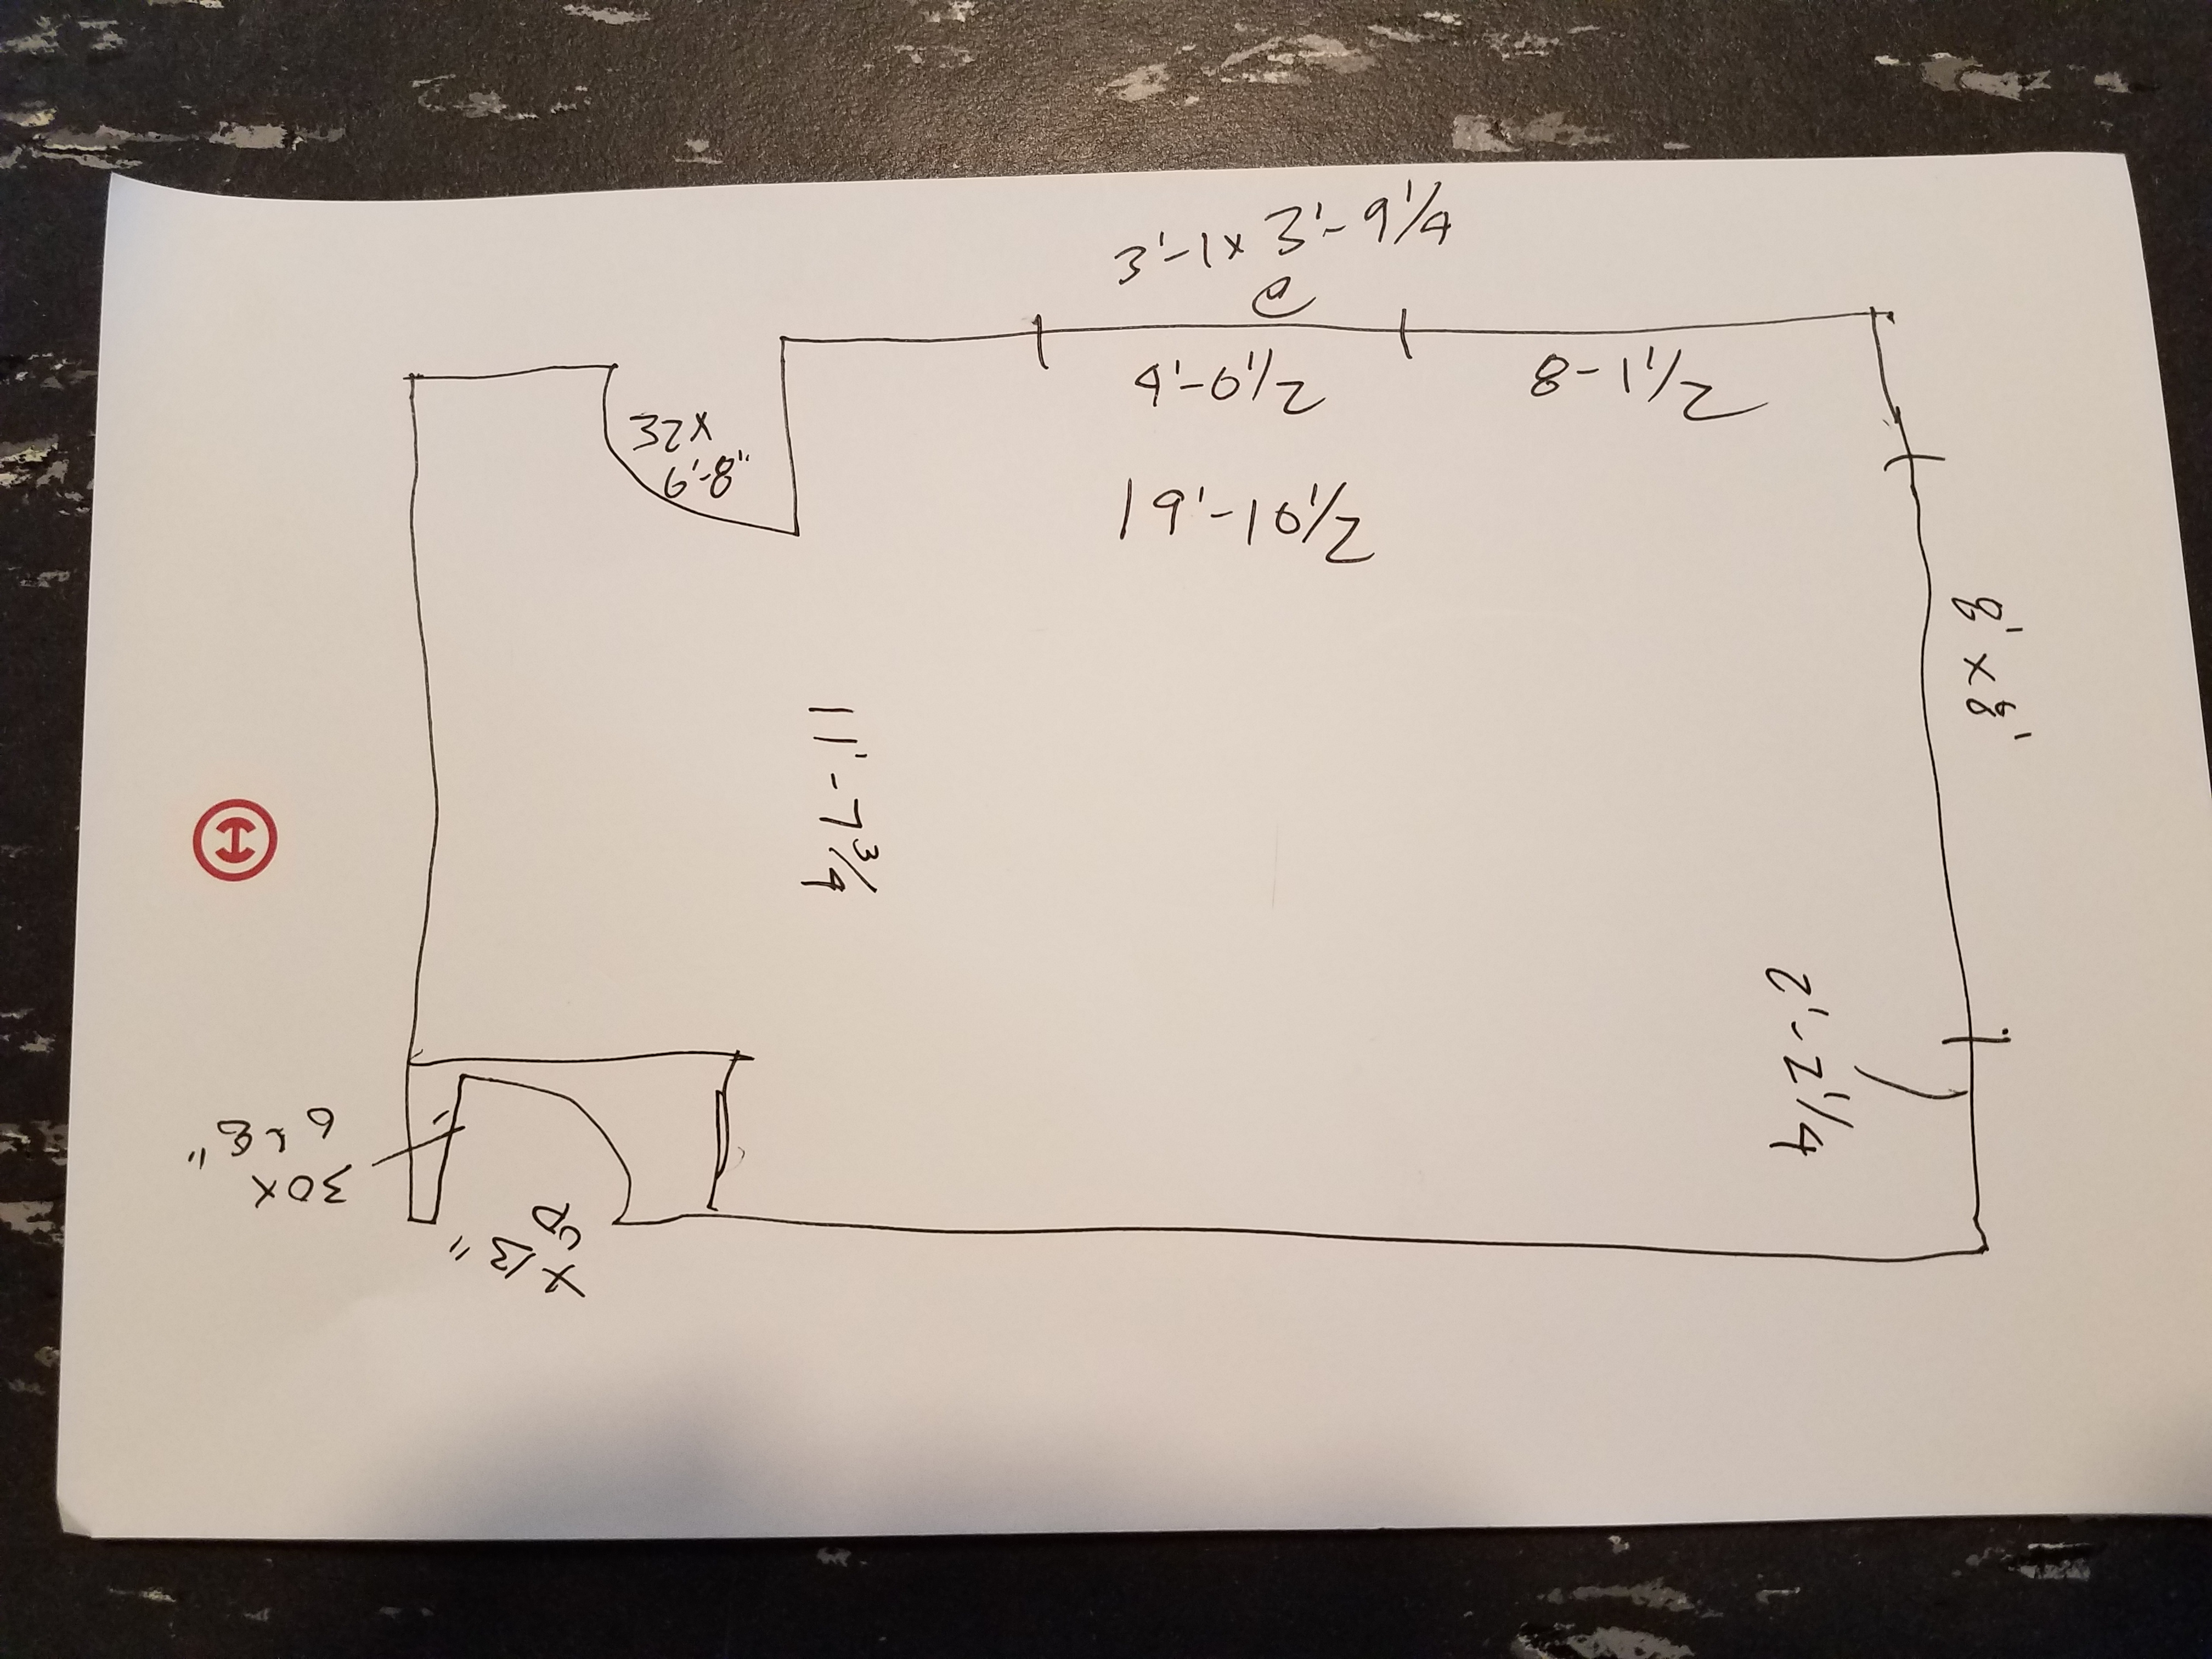 H
30 x
6'-8"
x 13"
UP
32 x
6'-8"
11'-7 3/4
3'-1 x 3'-9 1/4
@
4'-6 1/2
19'-10 1/2
8-1 1/2
2'-2 1/4
8' x 8'